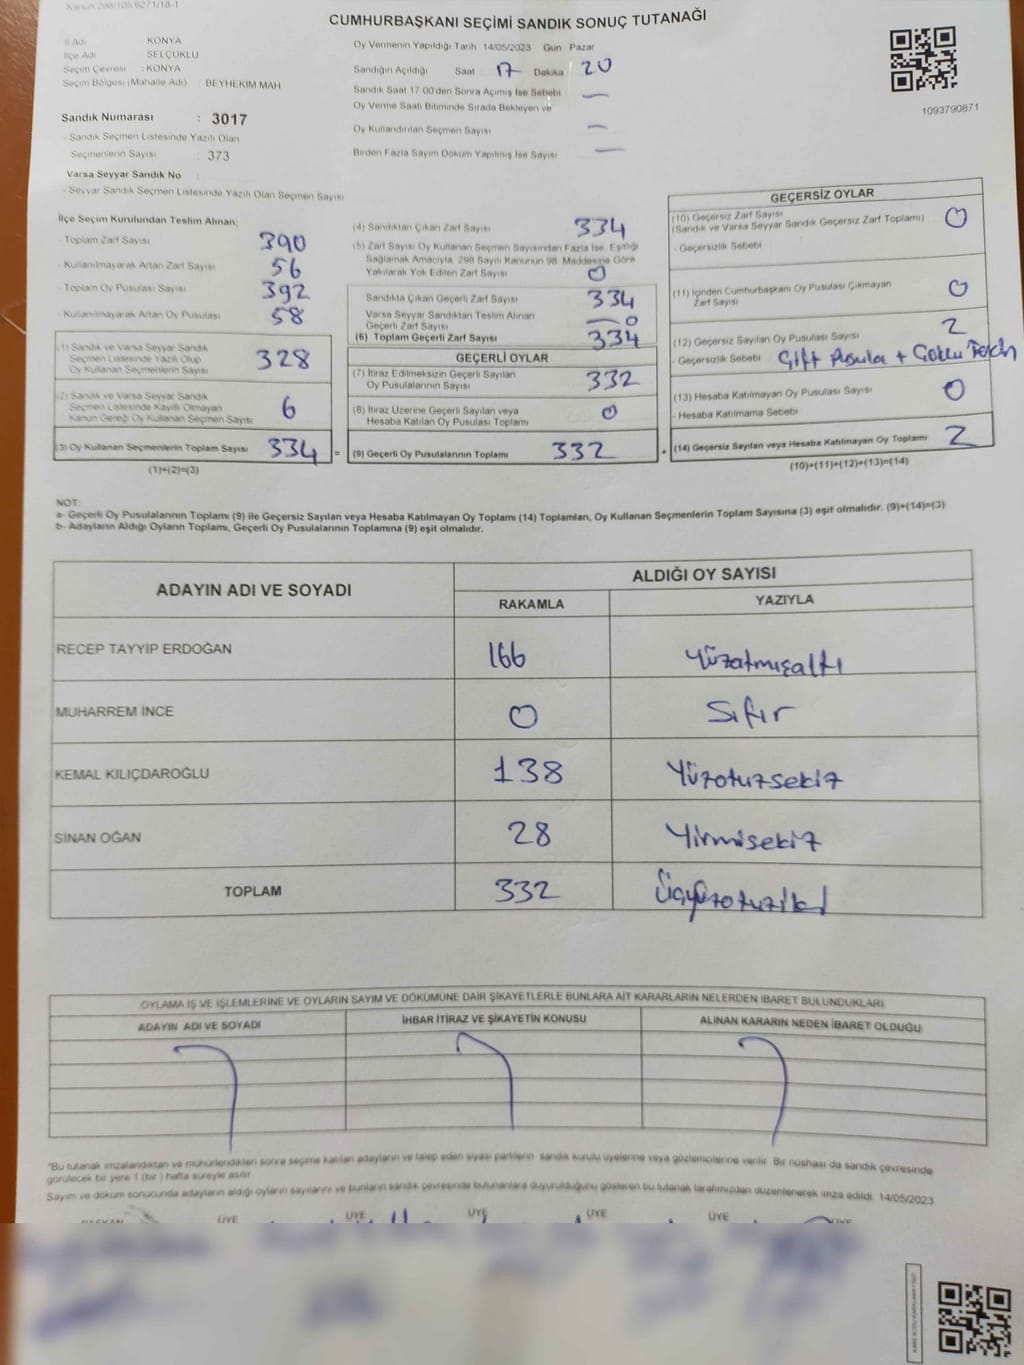 Kanun:298/105.6271/18-1
CUMHURBAŞKANI SEÇİMİ SANDIK SONUÇ TUTANAĞI
İl Adı KONYA
İlçe Adı SELÇUKLU
Seçim Çevresi : KONYA
Seçim Bölgesi (Mahalle Adı) BEYHEKIM MAH
Sandık Numarası : 3017
- Sandık Seçmen Listesinde Yazılı Olan
Seçmenlerin Sayısı : 373
Varsa Seyyar Sandık No :
- Seyyar Sandık Seçmen Listesinde Yazılı Olan Seçmen Sayısı
Oy Vermenin Yapıldığı Tarih 14/05/2023 Gün Pazar
Sandığın Açıldığı Saat 17 Dakika 20
Sandık Saat 17:00'den Sonra Açımış İse Sebebi —
Oy Verme Saati Bitiminde Sırada Bekleyen ve
Oy Kullandırılan Seçmen Sayısı —
Birden Fazla Sayım Döküm Yapılmış İse Sayısı —
1093790871
İlçe Seçim Kurulundan Teslim Alınan;
- Toplam Zarf Sayısı 390
- Kullanılmayarak Artan Zarf Sayısı 56
- Toplam Oy Pusulası Sayısı 392
- Kullanılmayarak Artan Oy Pusulası 58
(1) Sandık ve Varsa Seyyar Sandık
Seçmen Listesinde Yazılı Olup
Oy Kullanan Seçmenlerin Sayısı 328
(2) Sandık ve Varsa Seyyar Sandık
Seçmen Listesinde Kayıtlı Olmayan
Kanun Gereği Oy Kullanan Seçmen Sayısı 6
(3) Oy Kullanan Seçmenlerin Toplam Sayısı 334 =
(1)+(2)=(3)
(4) Sandıktan Çıkan Zarf Sayısı 334
(5) Zarf Sayısı Oy Kullanan Seçmen Sayısından Fazla İse, Eşitliği
Sağlamak Amacıyla, 298 Sayılı Kanunun 98. Maddesine Göre
Yakılarak Yok Edilen Zarf Sayısı 0
Sandıkta Çıkan Geçerli Zarf Sayısı 334
Varsa Seyyar Sandıktan Teslim Alınan
Geçerli Zarf Sayısı 0
(6) Toplam Geçerli Zarf Sayısı 334
GEÇERLİ OYLAR
(7) İtiraz Edilmeksizin Geçerli Sayılan
Oy Pusulalarının Sayısı 332
(8) İtiraz Üzerine Geçerli Sayılan veya
Hesaba Katılan Oy Pusulası Toplamı 0
(9) Geçerli Oy Pusulalarının Toplamı 332 +
GEÇERSİZ OYLAR
(10) Geçersiz Zarf Sayısı
(Sandık ve Varsa Seyyar Sandık Geçersiz Zarf Toplamı) 0
- Geçersizlik Sebebi
(11) İçinden Cumhurbaşkanı Oy Pusulası Çıkmayan
Zarf Sayısı 0
(12) Geçersiz Sayılan Oy Pusulası Sayısı 2
- Geçersizlik Sebebi Çift Pusula + Çoklu Tercih
(13) Hesaba Katılmayan Oy Pusulası Sayısı 0
- Hesaba Katılmama Sebebi
(14) Geçersiz Sayılan veya Hesaba Katılmayan Oy Toplamı 2
(10)+(11)+(12)+(13)=(14)
NOT:
a- Geçerli Oy Pusulalarının Toplamı (9) ile Geçersiz Sayılan veya Hesaba Katılmayan Oy Toplamı (14) Toplamları, Oy Kullanan Seçmenlerin Toplam Sayısına (3) eşit olmalıdır. (9)+(14)=(3)
b- Adayların Aldığı Oyların Toplamı, Geçerli Oy Pusulalarının Toplamına (9) eşit olmalıdır.
ADAYIN ADI VE SOYADI
ALDIĞI OY SAYISI
RAKAMLA YAZIYLA
RECEP TAYYİP ERDOĞAN 166 Yüzatmışaltı
MUHARREM İNCE 0 Sıfır
KEMAL KILIÇDAROĞLU 138 Yüzotuzsekiz
SİNAN OĞAN 28 Yirmisekiz
TOPLAM 332 Üçyüzotuziki
OYLAMA İŞ VE İŞLEMLERİNE VE OYLARIN SAYIM VE DÖKÜMÜNE DAİR ŞİKAYETLERLE BUNLARA AİT KARARLARIN NELERDEN İBARET BULUNDUKLARI
ADAYIN ADI VE SOYADI İHBAR İTİRAZ VE ŞİKAYETİN KONUSU ALINAN KARARIN NEDEN İBARET OLDUĞU
"Bu tutanak imzalandıktan ve mühürlendikten sonra seçime katılan adayların ve talep eden siyasi partilerin sandık kurulu üyelerine veya gözlemcilerine verilir. Bir nüshası da sandık çevresinde
görülecek bir yere 1 (bir) hafta süreyle asılır.
Sayım ve döküm sonucunda adayların aldığı oyların sayılarını ve bunların sandık çevresinde bulunanlara duyurulduğunu gösteren bu tutanak tarafımızdan düzenlenerek imza edildi. 14/05/2023
BAŞKAN ÜYE ÜYE ÜYE ÜYE ÜYE ÜYE